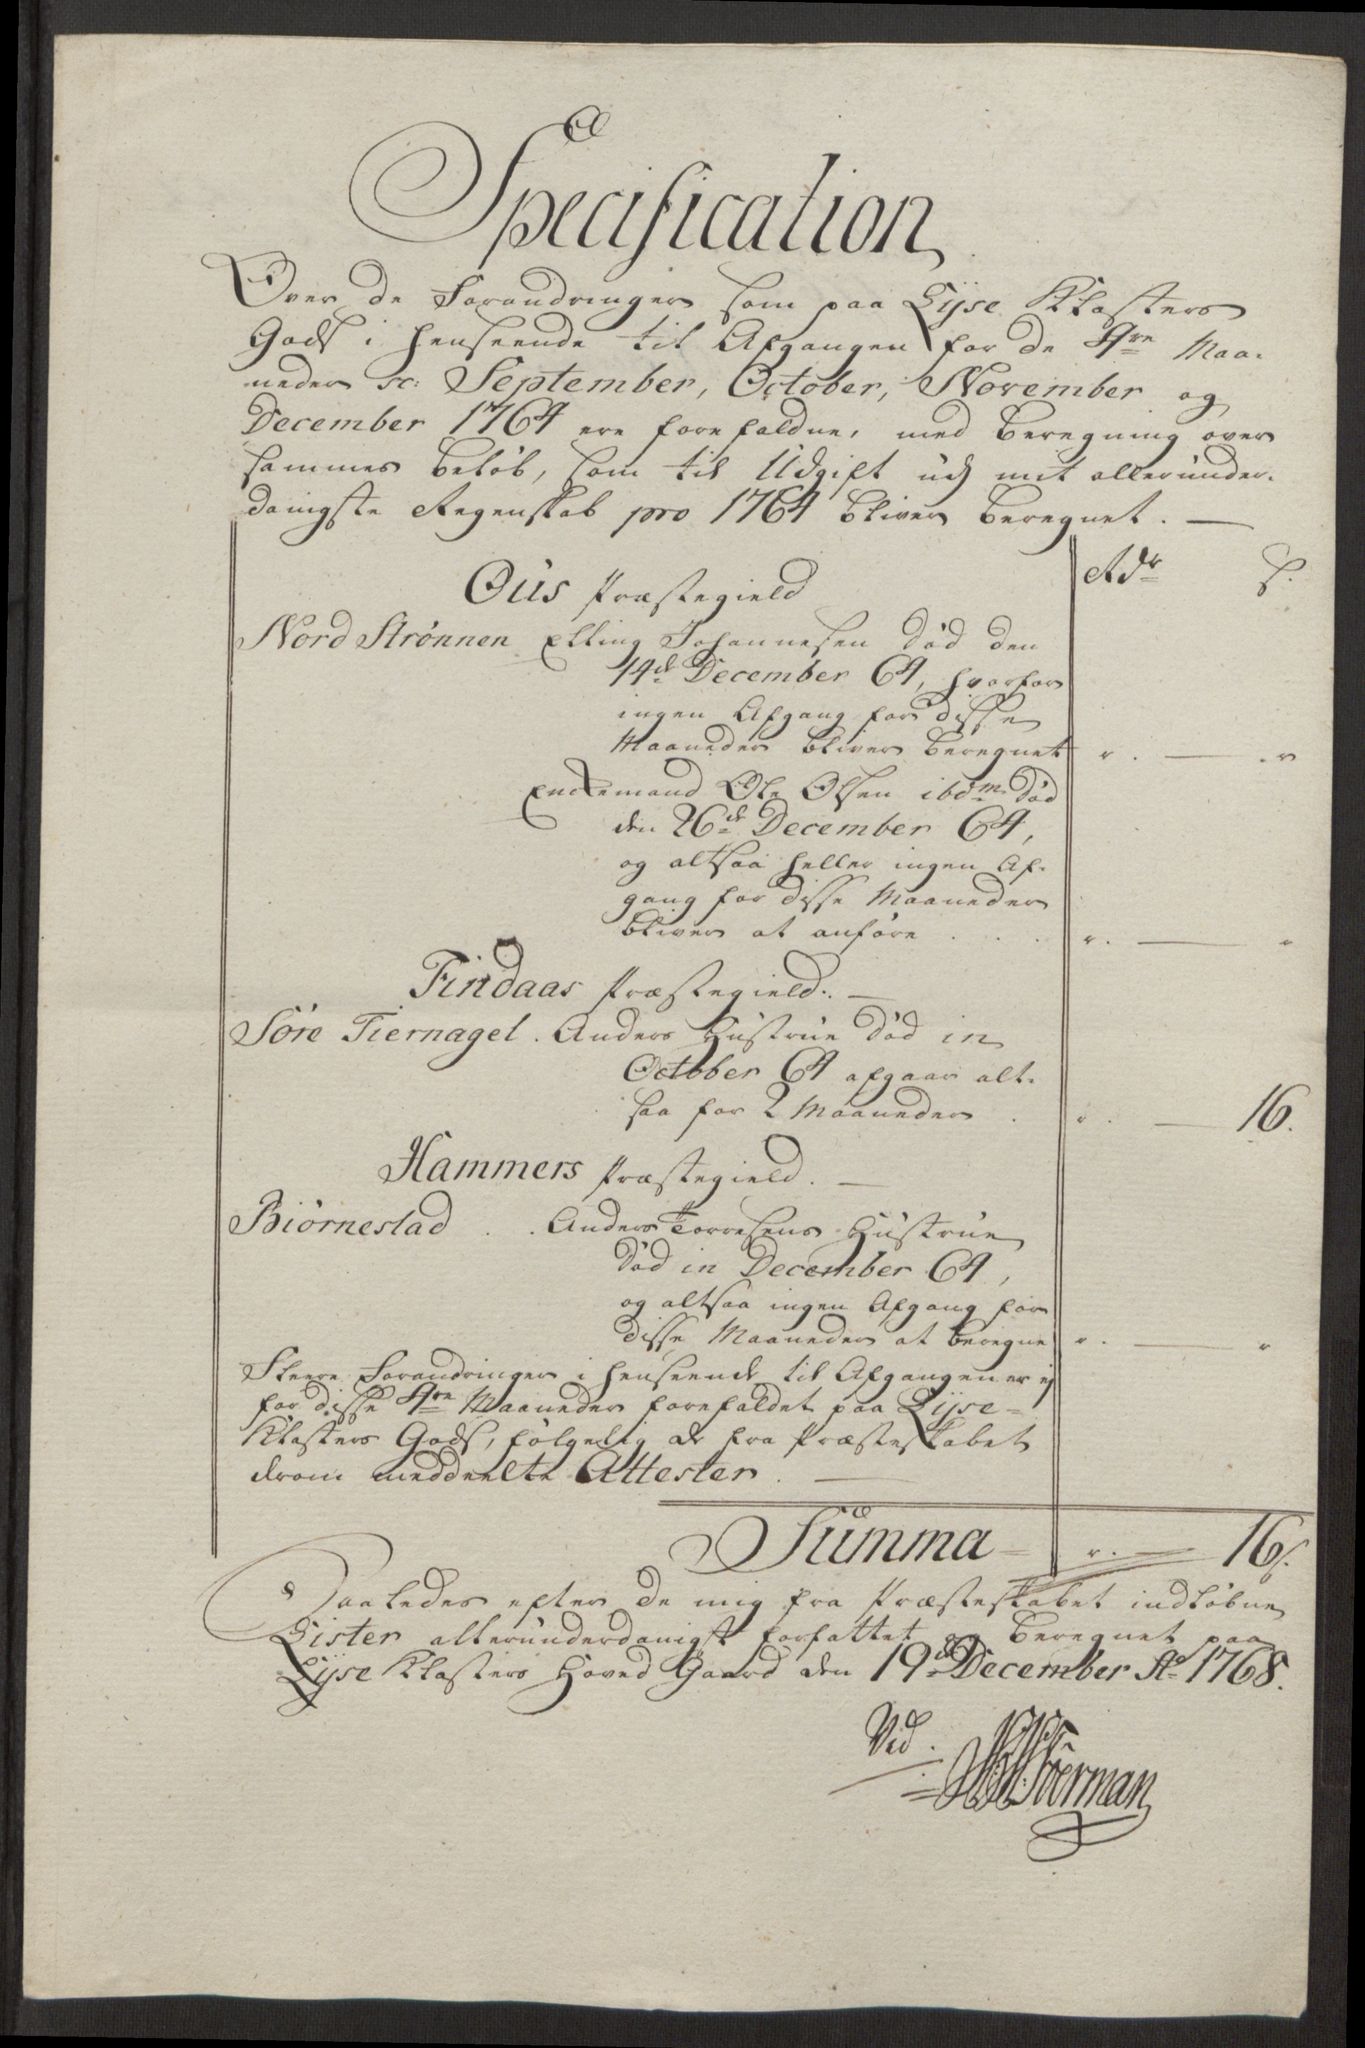 Specification
Over de Forandringer som paa Lyse Klosters
Gods i henseende til Afgangen for de 4re Maa-
neder sc: September, October, November og
December 1764 ere forefaldne, med beregning over
sammes beløb, som til Udgift udj mit allerunder-
danigste Regenskab pro 1764 bliver beregnet. —
Rdr ß.
Ous Præstegield
Nord Strønnen Elling Johannesen død den
14de December 64, hvorfor
ingen Afgang for disse
Maaneder bliver beregnet " . — . "
Enckemand Ole Olsen ibdm død
den 26de December 64,
og altsaa heller ingen Af-
gang for disse Maaneder
bliver at anføre . . . " . — "
Findaas Præstegield. —
Søre Tiernagel . Anders Hustrue død in
October 64 afgaar alt-
saa for 2 Maaneder . " . — 16.
Hammers Præstegield. —
Biørnestad . . Anders Torresens Hustrue
død in December 64,
og altsaa ingen Afgang for
disse Maaneder at beregne " . — "
Fleere Forandringer i henseende til Afgangen er ej
for disse 4re Maaneder forefaldet paa Lyse-
Klosters Gods, følgelig de fra Præsteskabet
derom meddeelte Attester. —
Summa " . — 16ß.
Saaledes efter de mig fra Præsteskabet indløbne
Lister allerunderdanigst forfattet og beregnet paa
Lyse Klosters Hoved Gaard den 19de December Ao 1768.
Ved.
Formann